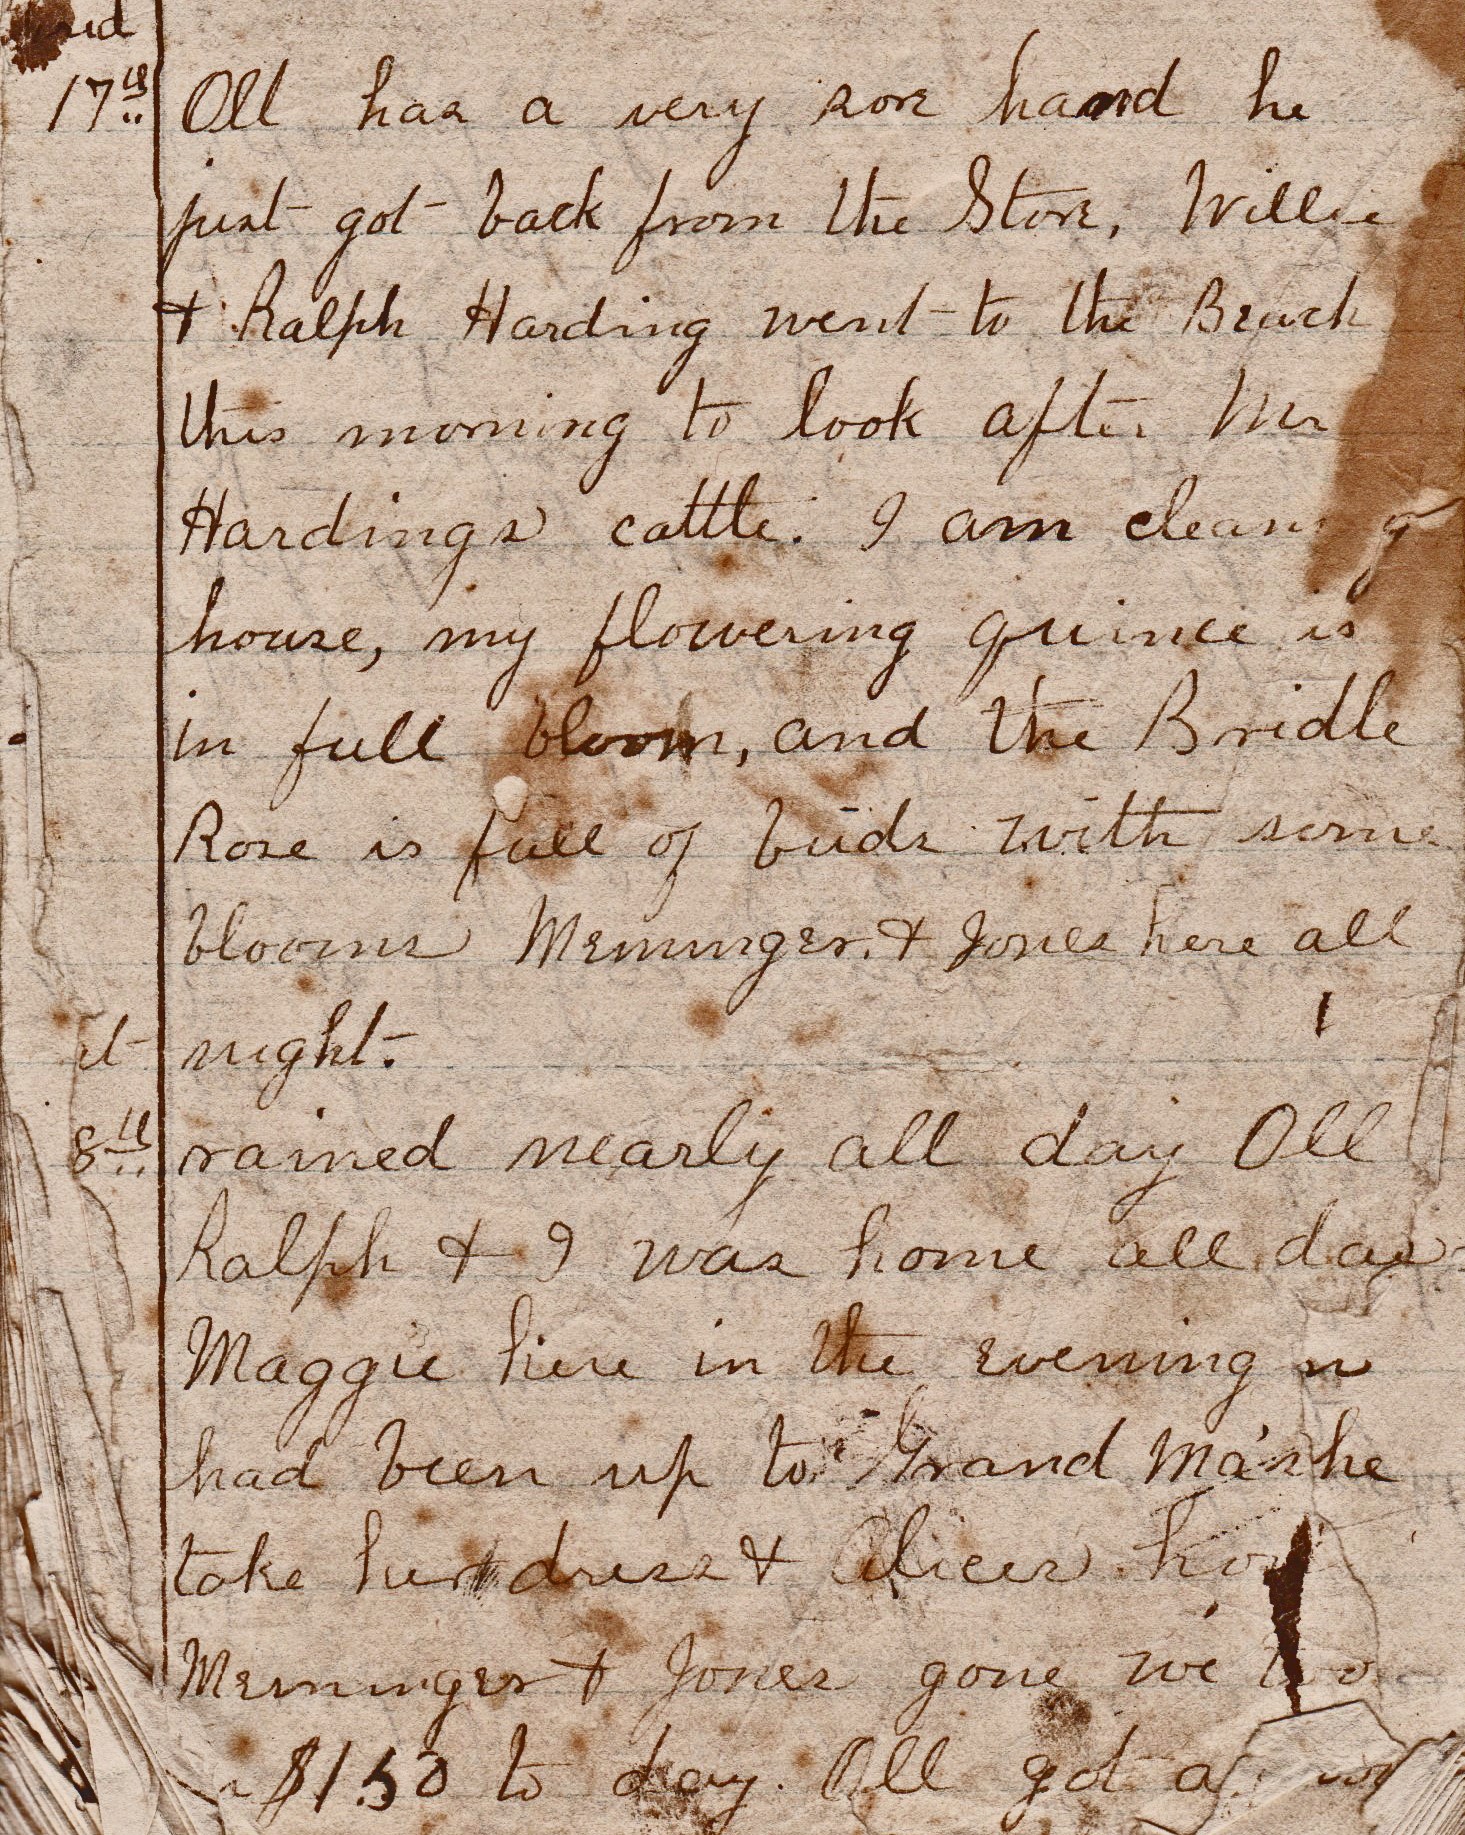 17th Oll has a very sore hand he
just got back from the Store, Willie
& Ralph Harding went to the Beach
this morning to look after Mr
Hardings cattle. I am cleaning
house, my flowering quince is
in full bloom, and the Bridle
Rose is full of buds with some
blooms Memminger. & Jones here all
night.
8th rained nearly all day Oll
Ralph & I was home all day
Maggie here in the evening
had been up to Grand Ma's she
take her dress & Alices
Memminger & Jones gone we
$1.50 to day. Oll got a